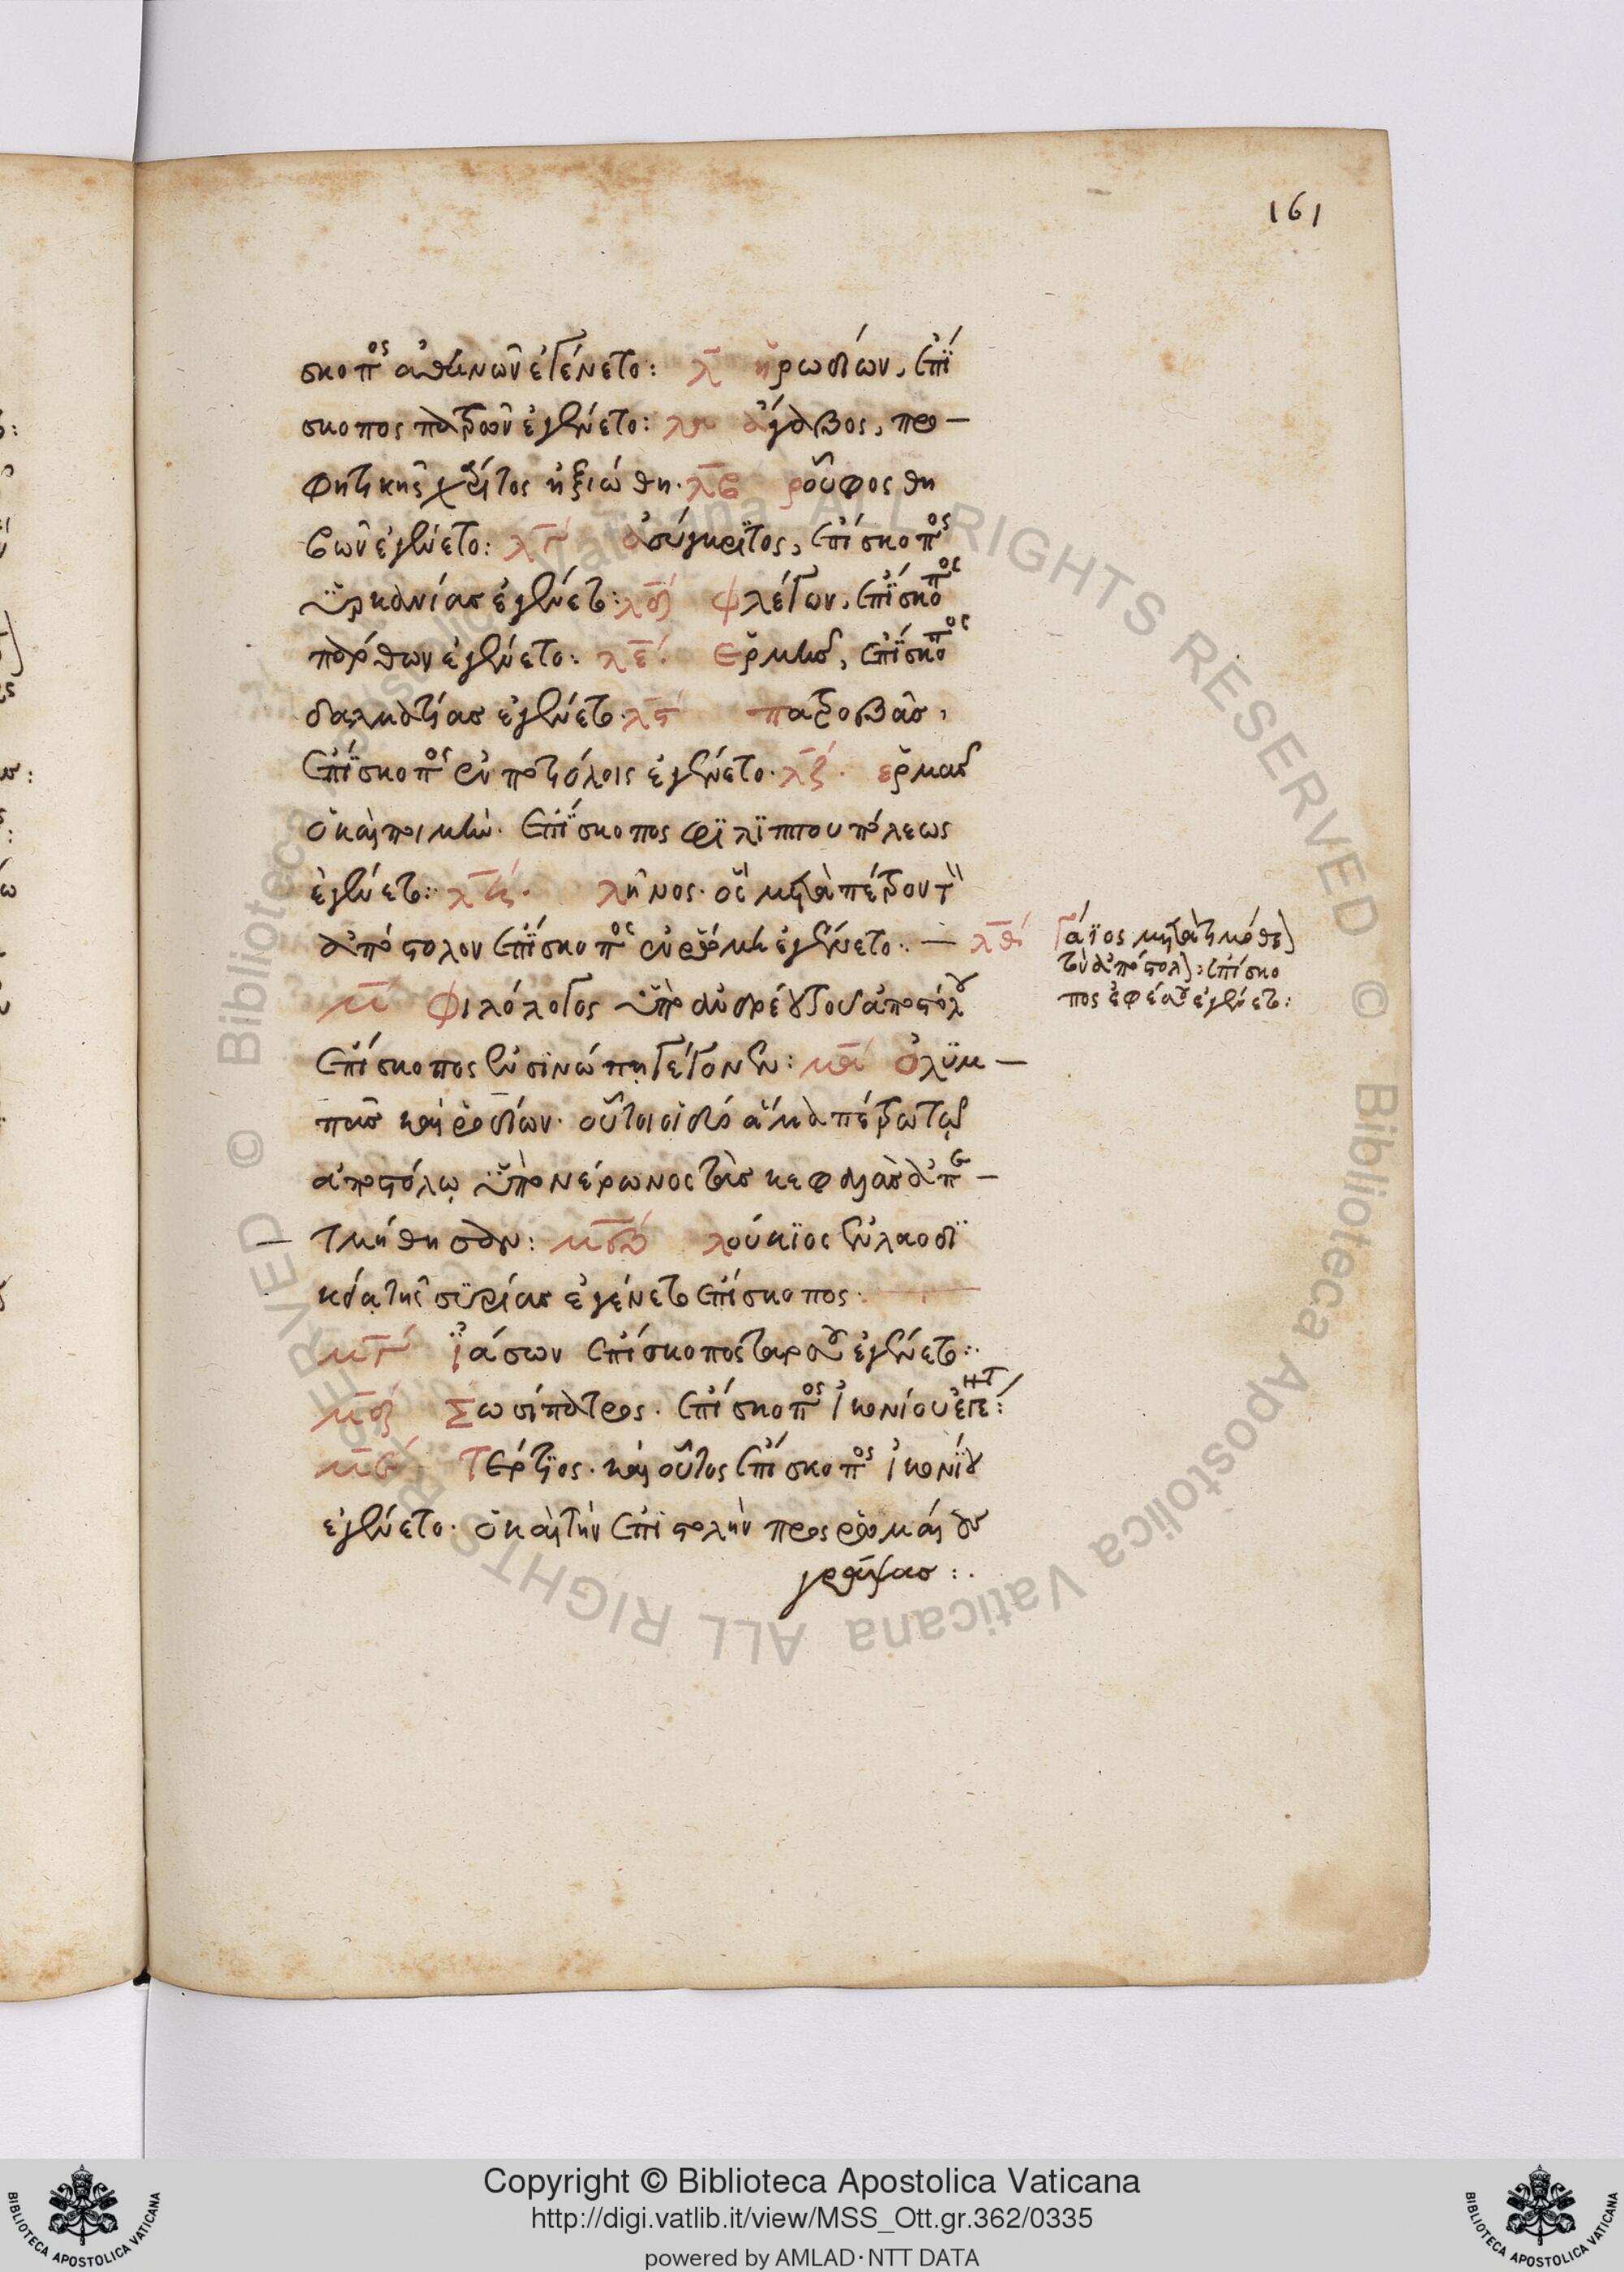 161
σκοπος ἀθηνῶν ἐγένετο: λ ἡρωδίων, ἐπί
σκοπος πατρῶν ἐγένετο: λα ἄγαβος, προ
φητικῆς χάριτος ἠξιώθη· λβ ῥοῦφος θη
βῶν ἐγένετο: λγ ἀσύγκριτος, ἐπίσκοπος
ὑρκανίας ἐγένετο: λδ φλέγων, ἐπίσκοπος
πάρθων ἐγένετο: λε ἑρμῆς, ἐπίσκοπος
δαλματίας ἐγένετο· λς πατροβᾶς,
ἐπίσκοπος ἐν ποτιόλοις ἐγένετο· λζ· ἑρμᾶς
ὁ καὶ ποιμὴν· ἐπίσκοπος φιλίππου πόλεως
ἐγένετο: λη· λῆνος· ὃς μετὰ πέτρον τὸν
ἀπόστολον ἐπίσκοπος ἐν ῥώμη ἐγένετο·
λθ Γάϊος μετὰ τιμόθεον
τὸν ἀπόστολον: ἐπίσκο
πος ἐφέσου ἐγένετο:
μ φιλόλογος ὑπὸ ἀνδρέου τοῦ ἀποστόλου
ἐπίσκοπος ἐν σινώπῃ γέγονεν: μα ὀλυμ
πᾶς καὶ ῥοδίων· οὗτοι οἱ δύο ἅμα πέτρω τῷ
ἀποστόλῳ ὑπὸ νέρωνος τὰς κεφαλὰς ἀπε
τμήθησαν: μβ λούκιος ἐν λαοδι
κείᾳ τῆς συρίας ἐγένετο ἐπίσκοπος·
μγ ἰάσων ἐπίσκοπος ταρσοῦ ἐγένετο:
μδ Σωσίπατρος· ἐπίσκοπος ἰκονίου ἐγένετο:
με Τέρτιος· καὶ οὗτος ἐπίσκοπος ἰκονίου
ἐγένετο· ὁ καὶ τὴν ἐπιστολὴν πρὸς ῥωμαίους
γράψας:
Copyright © Biblioteca Apostolica Vaticana
http://digi.vatlib.it/view/MSS_Ott.gr.362/0335
powered by AMLAD·NTT DATA